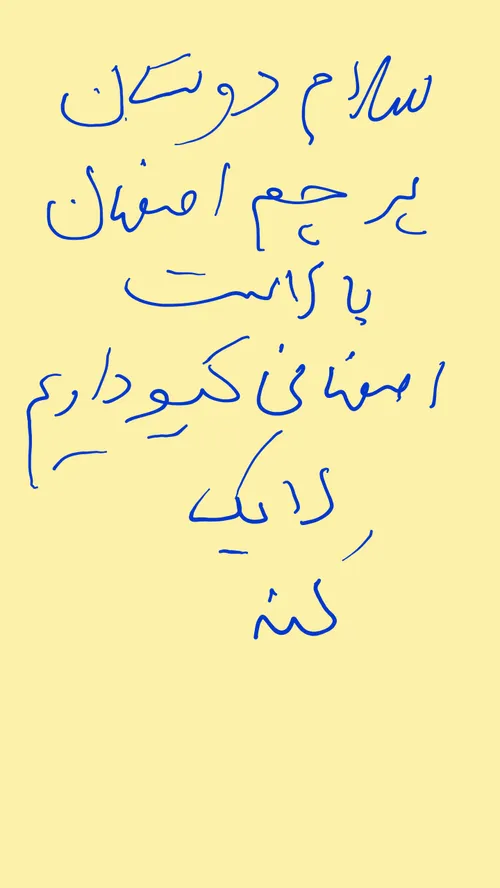 سلام دوستان
پرچم اصفهان
بالاست
اصفهانی کیو داریم
لایک
کنه